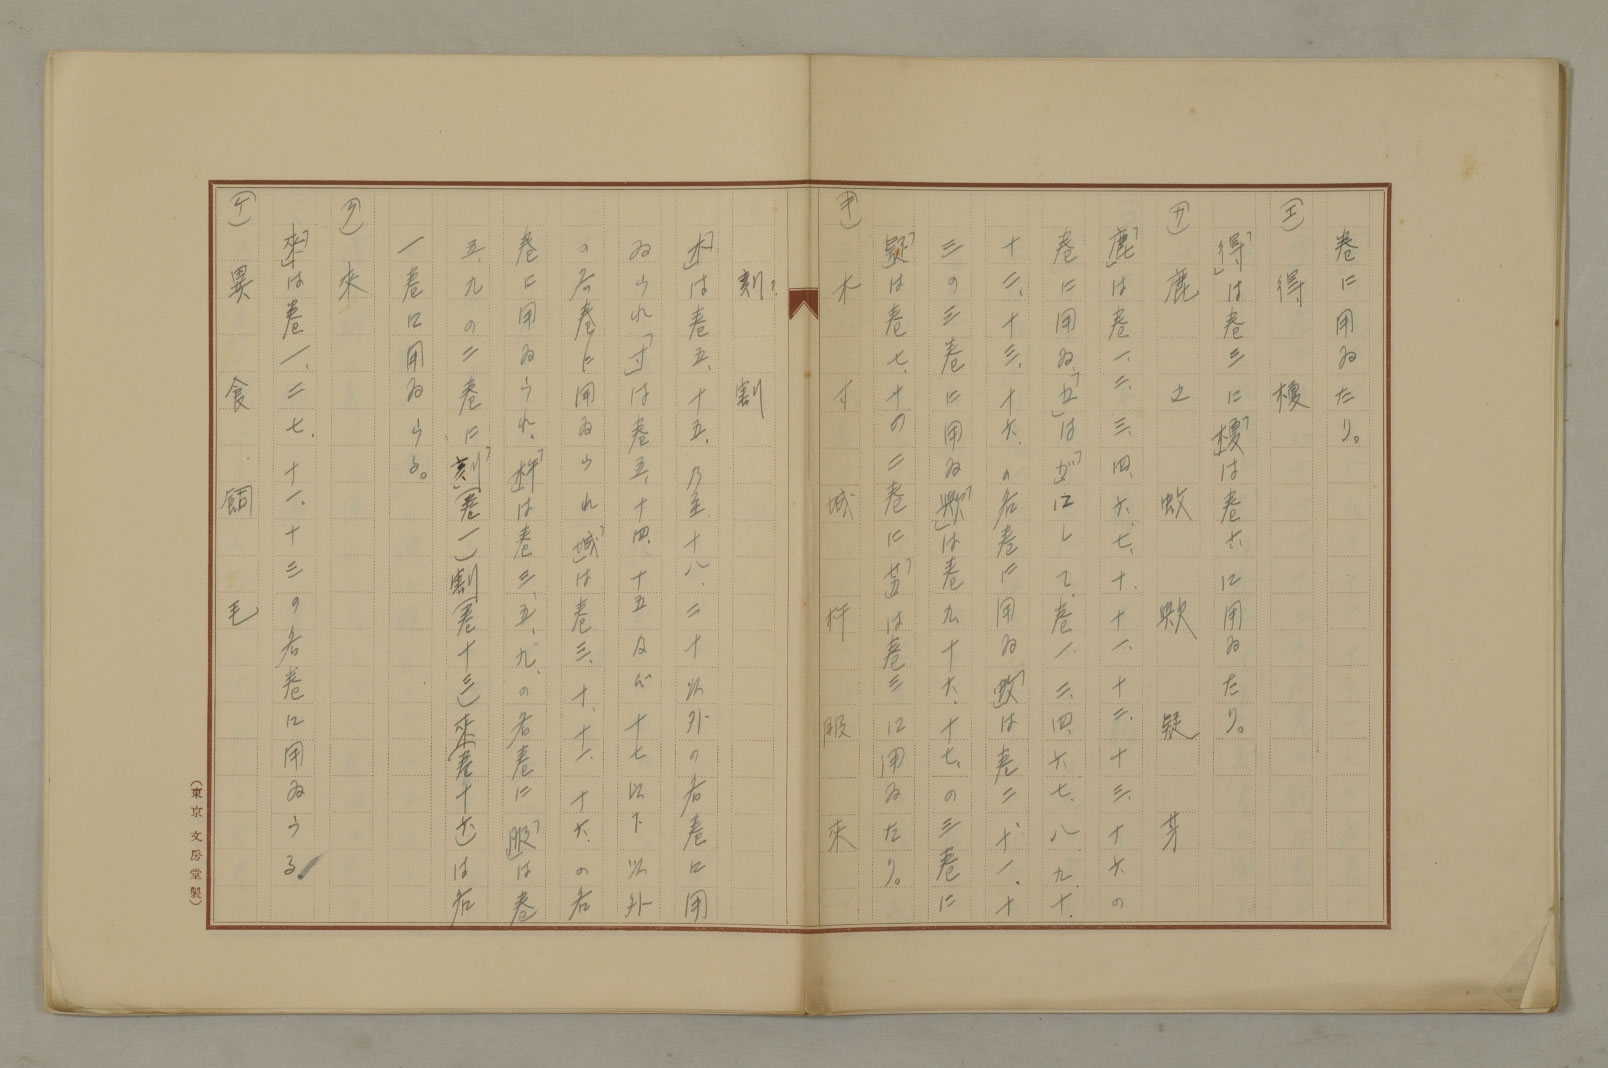 巻に用ゐたり。
(エ) 得 榎
「得」は巻三に「榎」は巻六に用ゐたり。
(カ) 鹿 之 蚊 歟 疑 芽
「鹿」は巻一、二、三、四、六、七、十、十一、十二、十三、十六の
巻に用ゐ、は「が」にして、巻一、二、四、六、七、八、九、十、
十二、十三、十六、の各巻に用ゐ「蚊」は巻二、十一、十
三の三巻に用ゐ「歟」は巻九、十六、十七、の三巻に
「疑」は巻七、十の二巻に は巻三に用ゐたり。
(キ) 木 寸 城 杵 服 来
刻 割
「木」は巻五、十五、乃至十八、二十以外の各巻に用
ゐられ「寸」は巻五、十四、十五及び十七以下以外
の各巻に用ゐられ「城」は巻三、十、十一、十六、の各
巻に用ゐられ、「杵」は巻三、五、九、の各巻に「服」は巻
五、九の二巻に「刻」(巻一)割(巻十三)来(巻十六)は各
一巻に用ゐらる。
(ク) 来
「来」は巻一、二、七、十一、十三の各巻に用ゐらる
(ケ) 異 食 飼 毛
(東京 文房堂製)